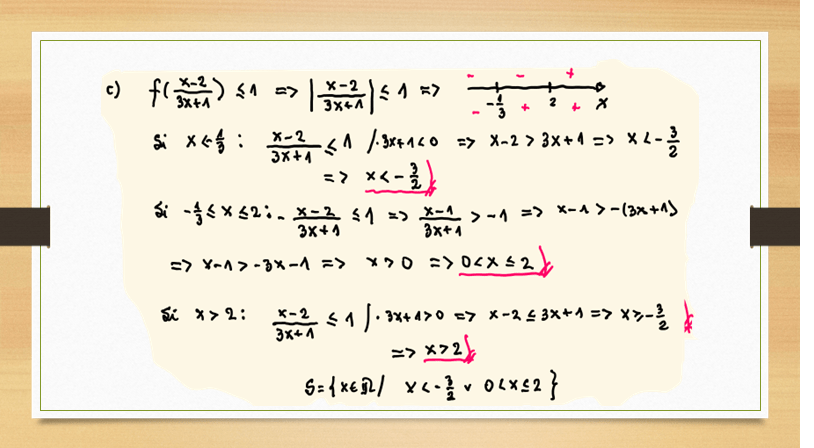 c) f(x-2/3x+1) ≤ 1 => |x-2/3x+1| ≤ 1 =>
- - +
-1/3 2 x
- + +
Si x<-1/3 : x-2/3x+1 ≤ 1 /·3x+1<0 => x-2 > 3x+1 => x < -3/2
=> x < -3/2
Si -1/3 ≤ x ≤ 2: - x-2/3x+1 ≤ 1 => x-1/3x+1 > -1 => x-1 > -(3x+1)
=> x-1 > -3x-1 => x > 0 => 0 < x ≤ 2
Si x > 2: x-2/3x+1 ≤ 1 /· 3x+1>0 => x-2 ≤ 3x+1 => x ≥ -3/2
=> x > 2
S = {x∈ℝ / x < -3/2 v 0 < x ≤ 2}